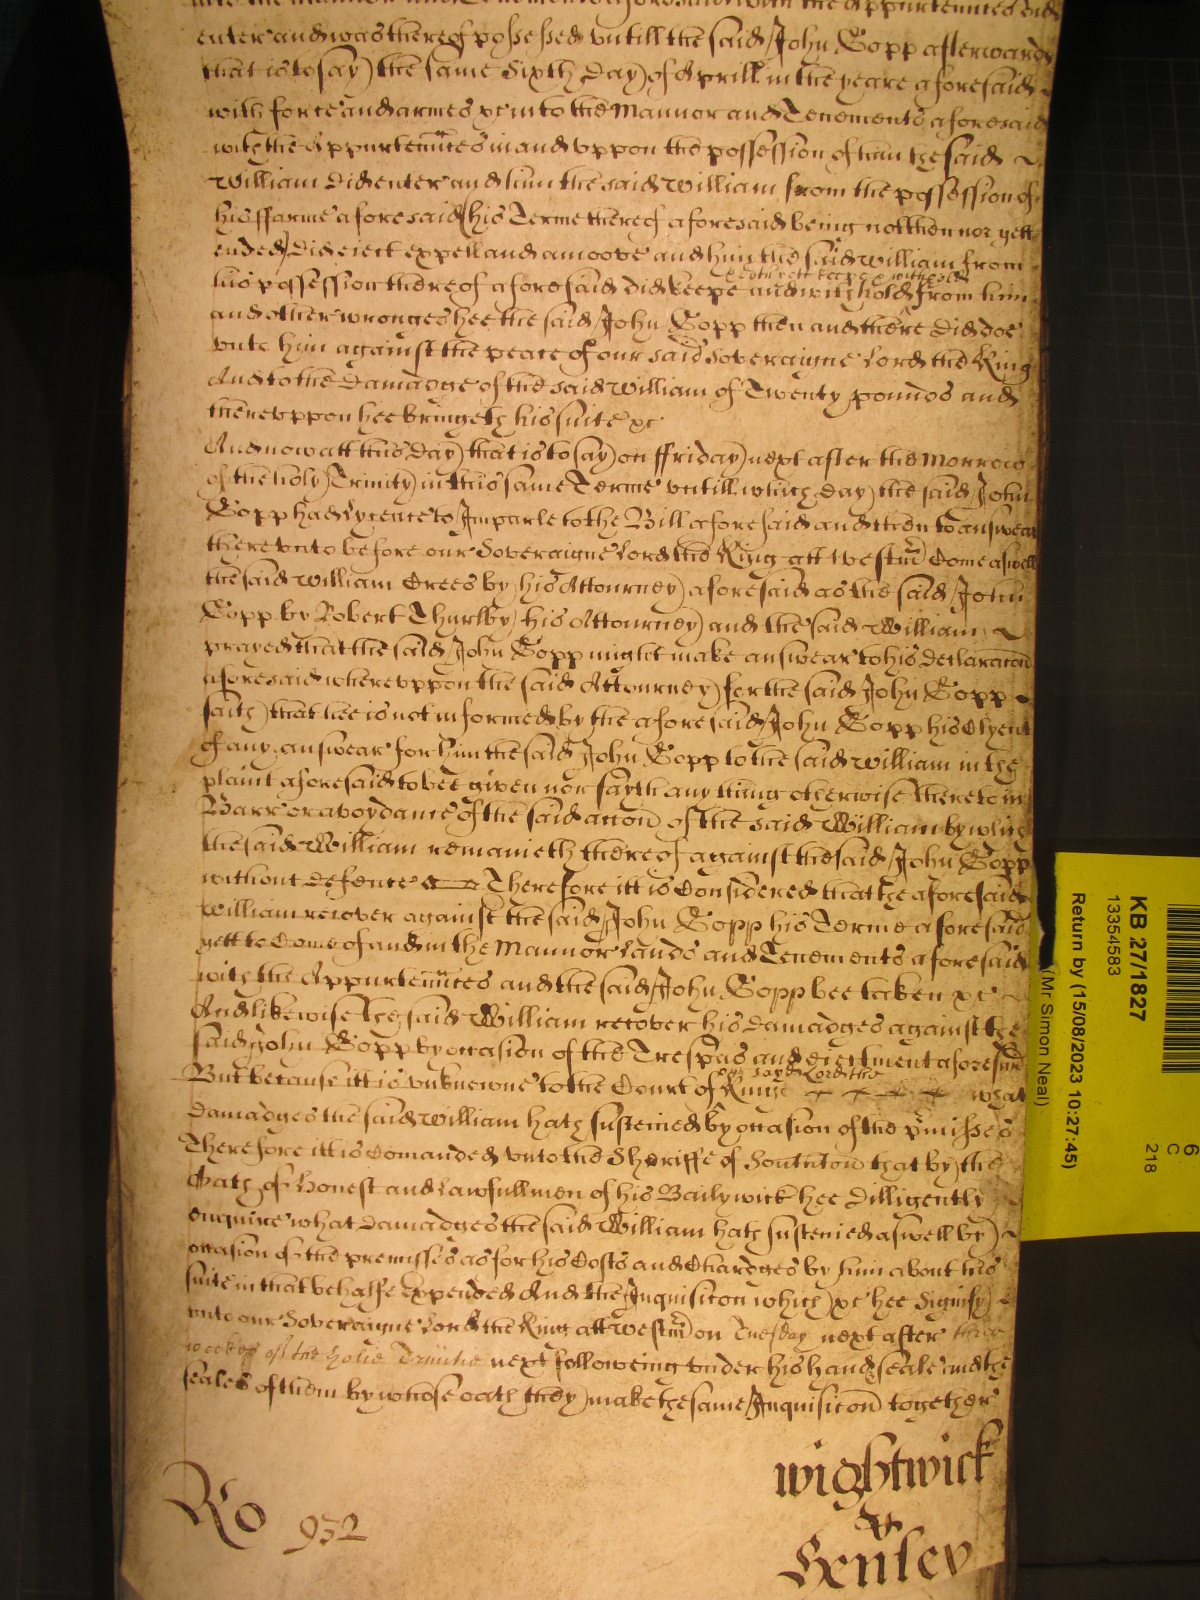 into the Mannor and Tenements aforesaid with the Appurtennces did
enter and was thereof possessed untill the said John Copp afterwards
that is to say the same Sixth Day of Aprill in the yeare aforesaid
with force and armes &c into the Mannor and Tenements aforesaid
with the Appurtennces in and uppon the possession of him the said
William did enter and him the said William from the possession of
his ffarme aforesaid his Terme thereof aforesaid being not then nor yett
ended did eiect expell and amoove and him the said William from
& doth yett keepe & withhold
his possession thereof aforesaid did keepe and withhold from him
and other wronges hee the said John Copp then and there did doe
unto him against the peace of our said Soveraigne Lord the King
And to the Damadge of the said William of Twenty pounds and
thereuppon hee bringeth his suite &c
And now att this Day that is to say on ffriday next after the Morrow
of the holy Trinity in this same Terme untill which Day the said John
Copp had Lycence to Imparle to the Bill aforesaid and then to answear
thereunto before our Soveraigne Lord the King att Westm Come aswell
the said William Crees by his Attourney aforesaid as the said John
Copp by Robert Thurlby his Attourney and the said William
prayed that the said John Copp might make answear to his Declaracon
aforesaid whereuppon the said Attourney for the said John Copp
saith that hee is not informed by the aforesaid John Copp his Clyent
of any answear for him the said John Copp to the said William in the
plaint aforesaid to bee given nor sayth any thing otherwise thereto in
Barr or avoydance of the said accon of the said William by which
the said William remanieth thereof against the said John Copp
without defence Therefore itt is Considered that the aforesaid
William recover against the said John Copp his Terme aforesaid
yett to Come of and in the Mannor Lands and Tenements aforesaid
with the Appurtennces and the said John Copp bee taken &c
And likewise the said William recover his Damadges against the
said John Copp by occasion of the Trespas and eiectment aforesaid
our sayd Lord the
But because itt is unknowne to the Court of King what
Damadges the said William hath susteined by occasion of the pmisses
Therefore itt is Comanded unto the Sheriffe of Southton that by the
Oath of Honest and Lawfull men of his Bailywick hee Dilligently
enquire what Damadges the said William hath susteined aswell by
occasion of the premisses as for his Costs and Chardges by him about his
suite in that behalfe expended And the Inquisicon which &c hee Signify
unto our Soveraigne Lord the King att Westm on Tuesday next after three
weekes of the holie Trinitie next followeing under his hand seale and the
seales of them by whose oath they make the same Inquisicon together
Ro 932
wightwick
&
Henley
KB 27/1827
13354583
Return by (15/08/2023 10:27:45)
(Mr Simon Neal)
6
C
218